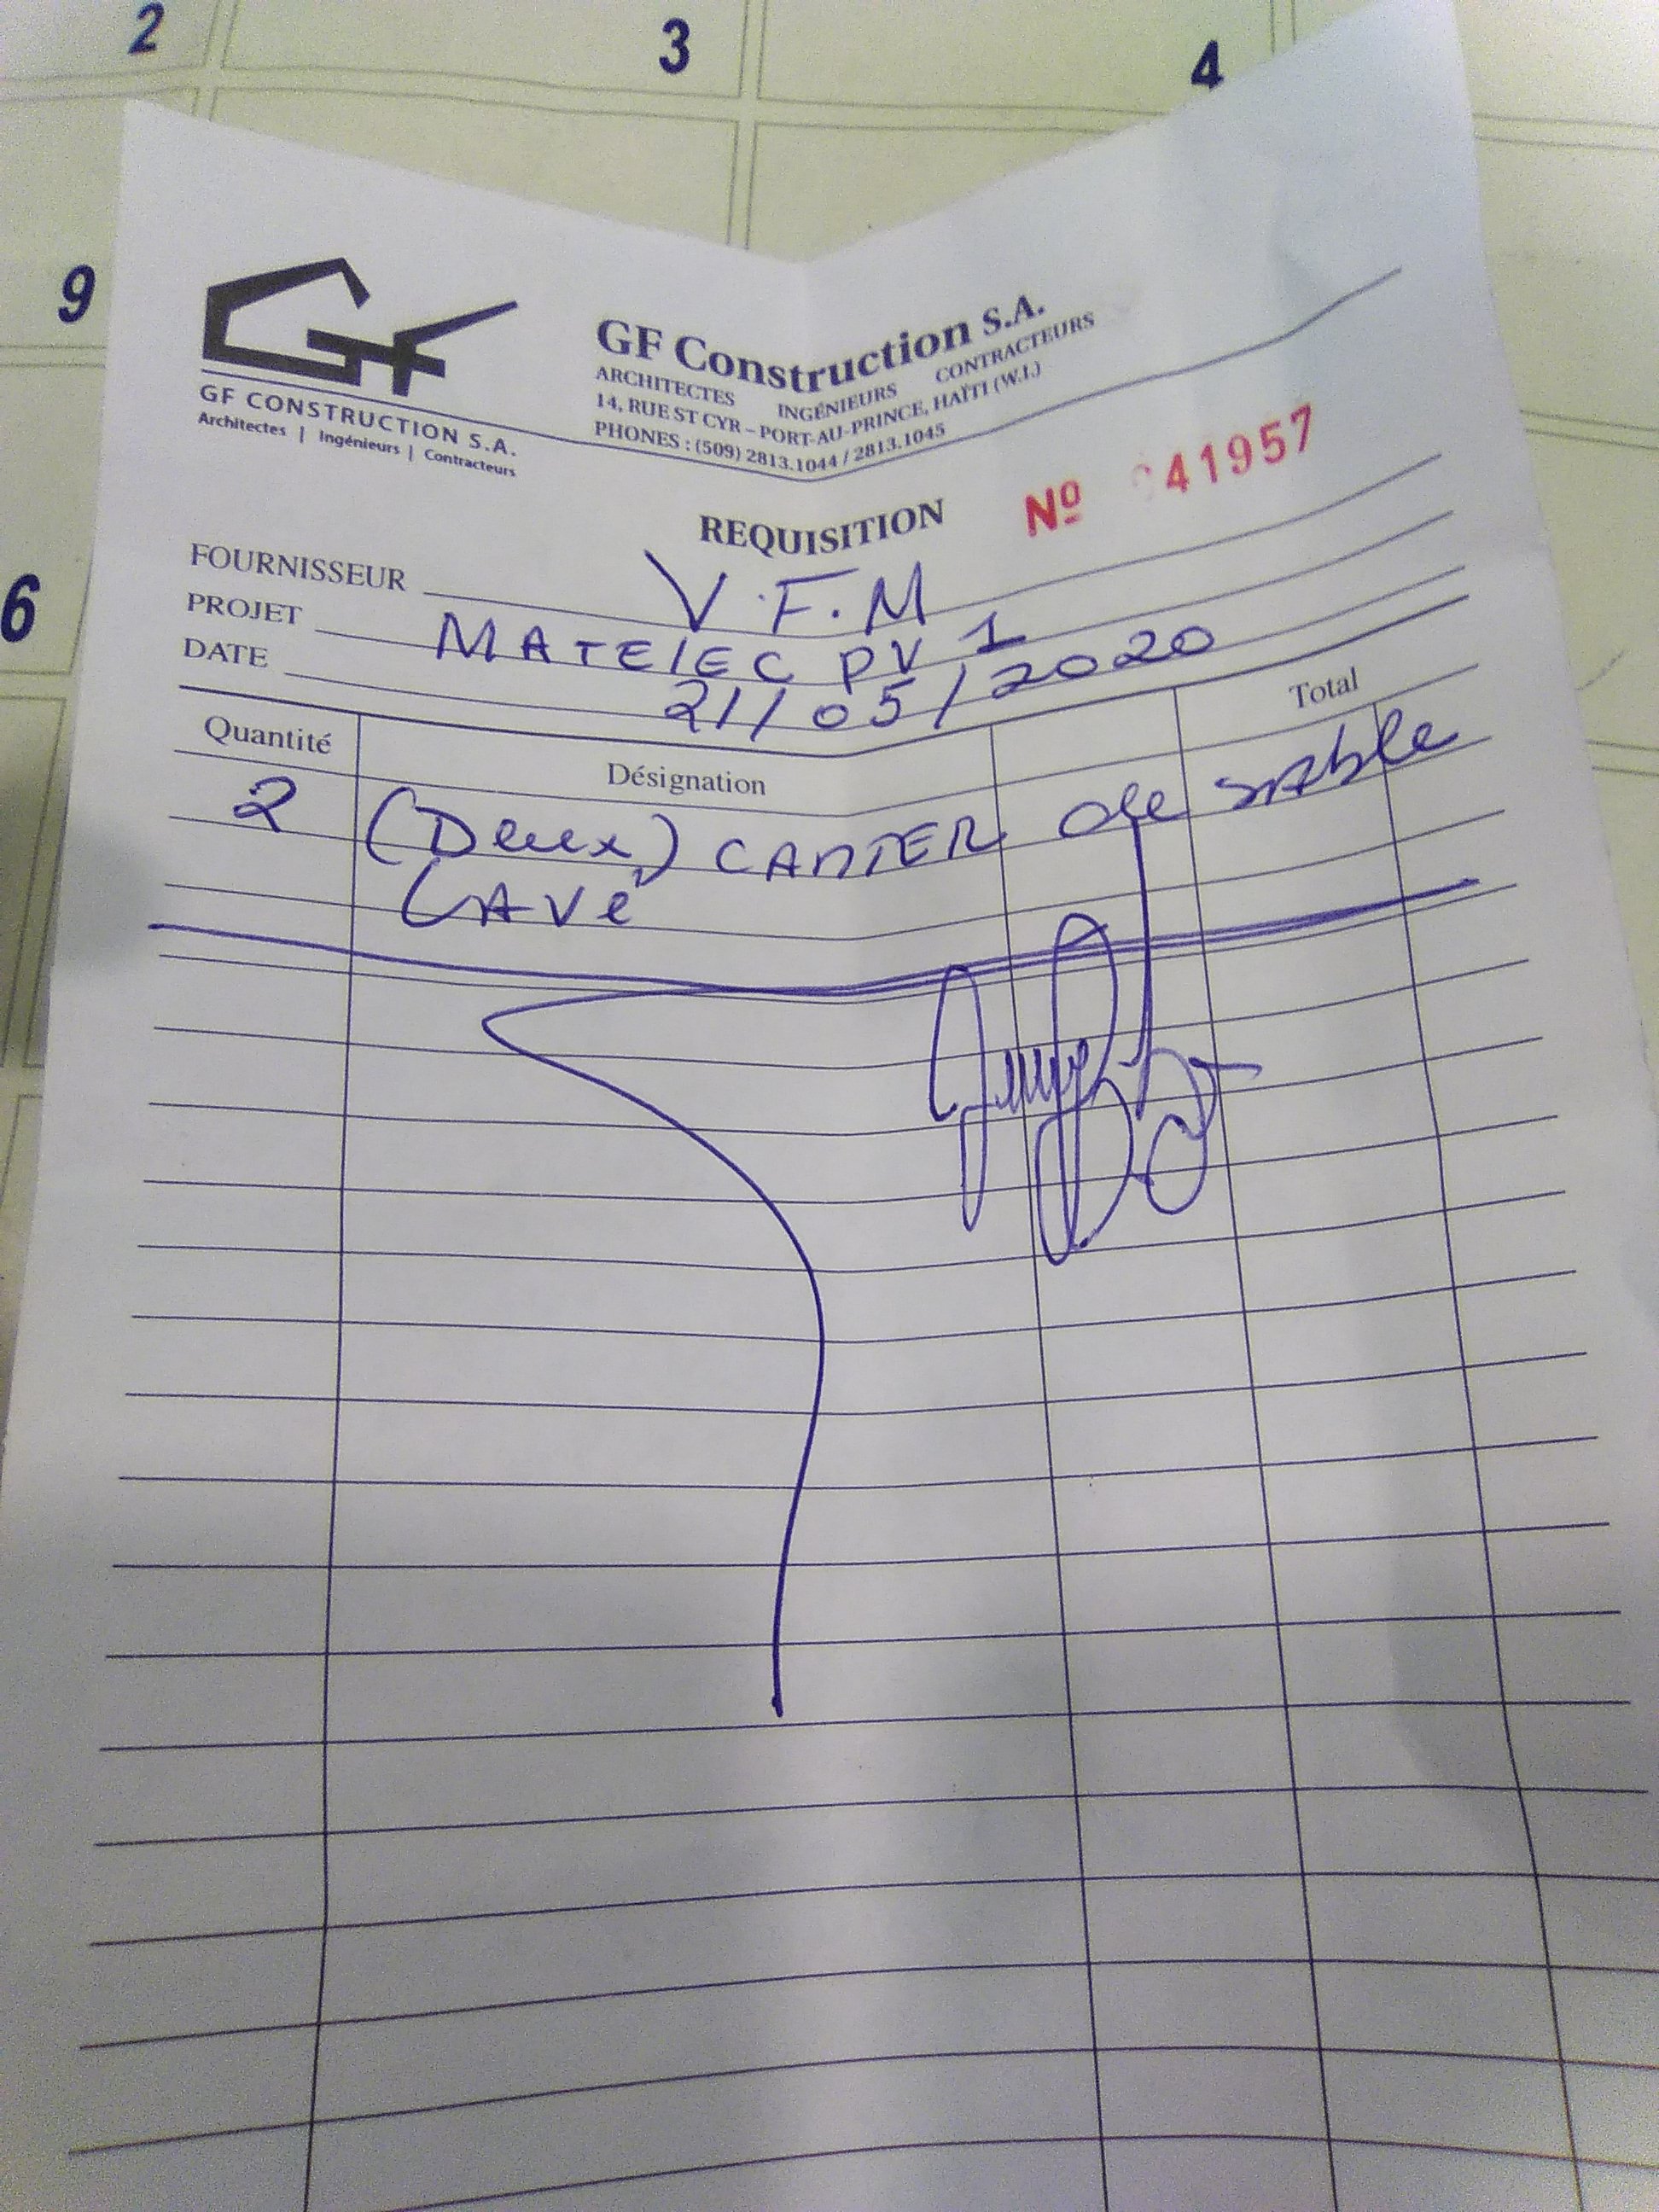 2 3 4
9
6
GF CONSTRUCTION S.A.
Architectes | Ingénieurs | Contracteurs
GF Construction S.A.
ARCHITECTES INGÉNIEURS CONTRACTEURS
14, RUE ST CYR – PORT-AU-PRINCE, HAÏTI (W.I.)
PHONES : (509) 2813.1044 / 2813.1045
REQUISITION Nº 041957
FOURNISSEUR V.F.M
PROJET MATELEC PV 1
DATE 21/05/2020
Quantité Désignation Total
2 (Deux) CANTER de sable
LAVé